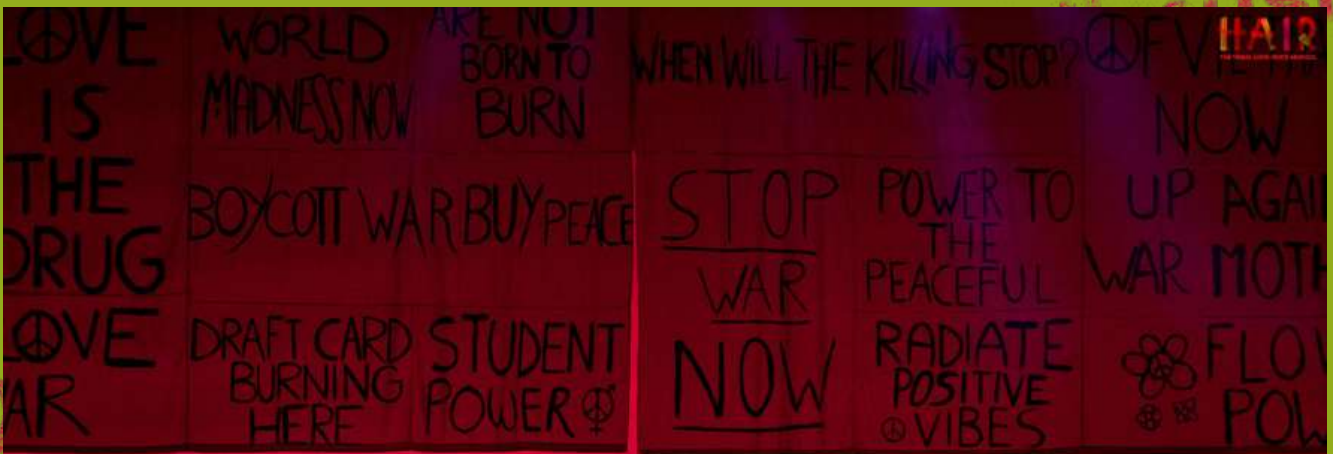 LOVE
IS
THE
DRUG
LOVE
WAR
WORLD
MADNESS NOW
ARE NOT
BORN TO
BURN
BOYCOTT WAR BUY PEACE
DRAFT CARD
BURNING
HERE
STUDENT
POWER
WHEN WILL THE KILLING STOP?
STOP
WAR
NOW
POWER TO
THE
PEACEFUL
RADIATE
POSITIVE
VIBES
HAIR
NOW
UP AGAI
WAR MOTH
FLOW
POW